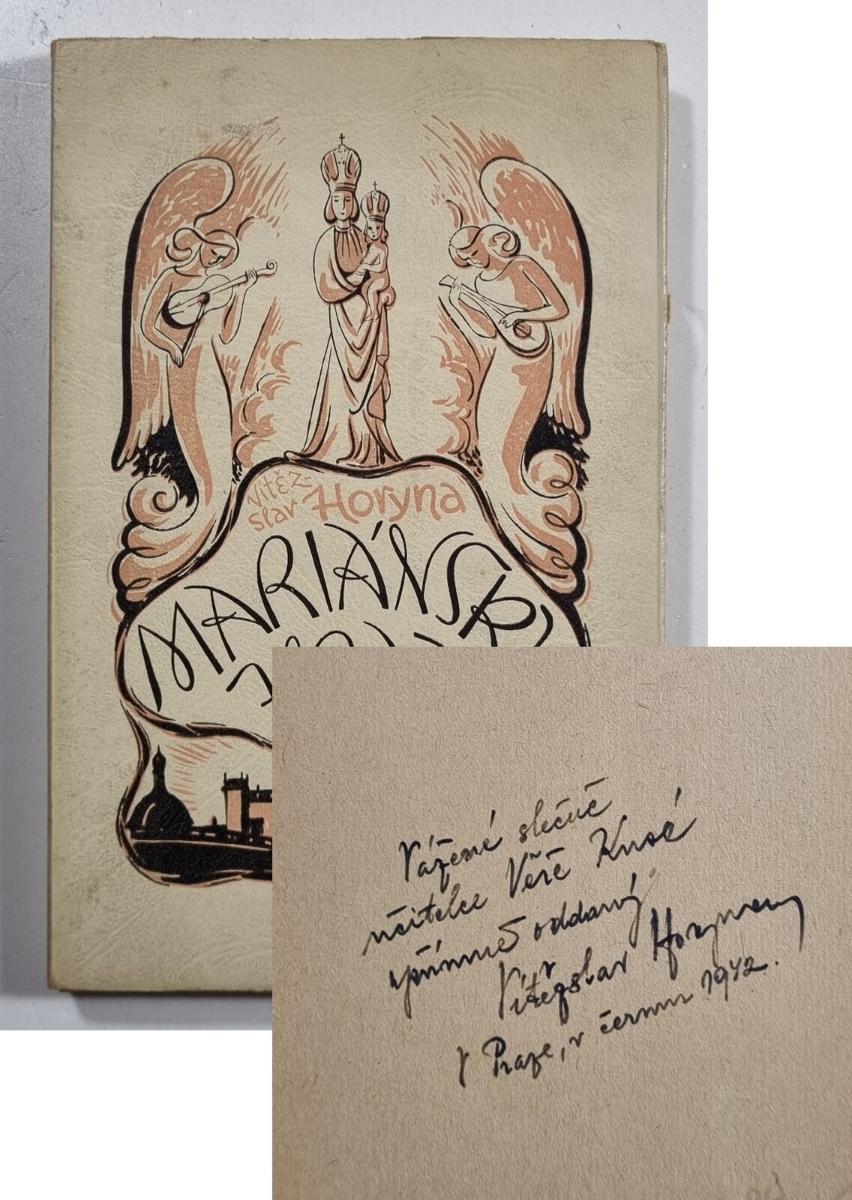 Vítěz-
slav Horyna
MARIÁNSKÝ
Vážené slečně
učitelce Věře Kusé
upřímně oddaný
Vítězslav Horyna
V Praze, v červnu 1942.